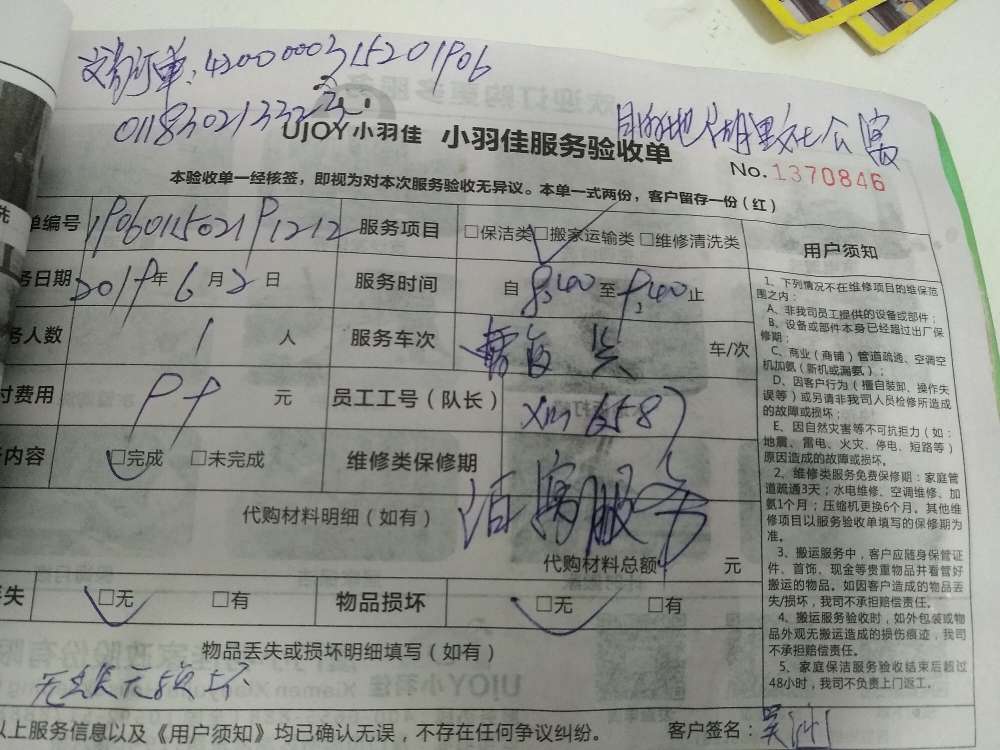 交易订单:4200000315201906
0118302133332
目的地 湖里文化公寓
UJOY小羽佳 小羽佳服务验收单
No.1370846
本验收单一经核签,即视为对本次服务验收无异议。本单一式两份,客户留存一份(红)
单编号 服务项目 □保洁类 □搬家运输类 □维修清洗类
务日期 2019年6月2日 服务时间 自8:40至9:40止
务人数 1人 服务车次 车/次
付费用 99元 员工工号(队长) xm6587
务内容 □完成 □未完成 维修类保修期
代购材料明细(如有)
泊寓服务
代购材料总额 元
丢失 □无 □有 物品损坏 □无 □有
物品丢失或损坏明细填写(如有)
无丢失无损坏
以上服务信息以及《用户须知》均已确认无误,不存在任何争议纠纷。 客户签名:
用户须知
1、下列情况不在维修项目的维保范
围之内:
A、非我司员工提供的设备或部件;
B、设备或部件本身已经超过出厂保
修期;
C、商业(商铺)管道疏通、空调空
机加氨(新机或漏氨);
D、因客户行为(擅自装卸、操作失
误等)或另请非我司人员检修所造成
的故障或损坏;
E、因自然灾害等不可抗拒力(如:
地震、雷电、火灾、停电、短路等)
原因造成的故障或损坏。
2、维修类服务免费保修期:家庭管
道疏通3天;水电维修、空调维修、加
氨1个月;压缩机更换6个月。其他维
修项目以服务验收单填写的保修期为
准。
3、搬运服务中,客户应随身保管证
件、首饰、现金等贵重物品并看管好
搬运的物品。如因客户造成的物品丢
失/损坏,我司不承担赔偿责任。
4、搬运服务验收时,如外包装或物
品外观无搬运造成的损伤痕迹,我司
不承担赔偿责任。
5、家庭保洁服务验收结束后超过
48小时,我司不负责上门返工。